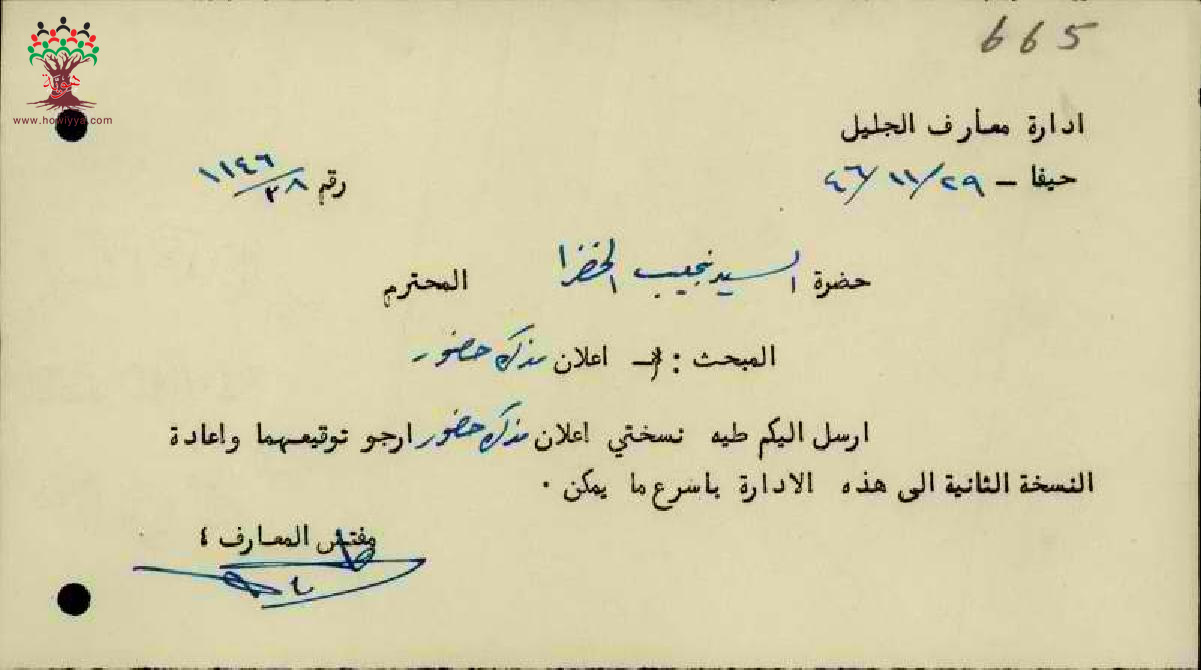 665
هوية
www.howiyya.com
ادارة معارف الجليل
حيفا – ٢٩/١١/٤٦
رقم ١١٤٦/٣٨
حضرة السيد نجيب الخضرا المحترم
المبحث : – اعلان حضور
ارسل اليكم طيه نسختي اعلان حضور ارجو توقيعهما واعادة
النسخة الثانية الى هذه الادارة باسرع ما يمكن ٠
مفتش المعارف ٤